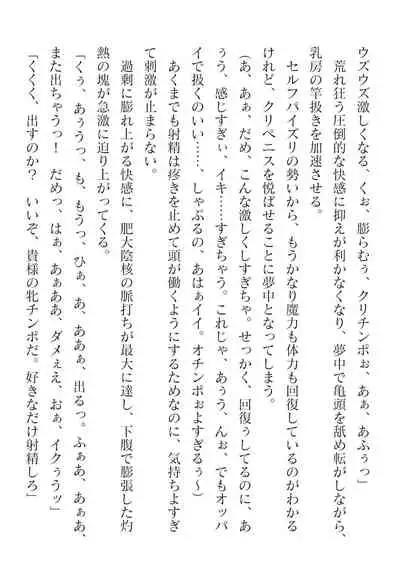 ウズウズ激しくなる、くぉ、膨らむぅ、クリチンポぉ、あぁ、あふぅっ」
荒れ狂う圧倒的な快感に抑えが利かなくなり、夢中で亀頭を舐め転がしながら、
乳房の竿扱きを加速させる。
セルフパイズリの勢いから、もうかなり魔力も体力も回復しているのがわかる
けれど、クリペニスを悦ばせることに夢中となってしまう。
（あ、あぁ、だめ、こんな激しくしすぎちゃ。せっかく、回復ぅしてるのに、あ
ぅう、感じすぎぃ、イキ……すぎちゃう。これじゃ、あぅう、んぉ、でもオッパ
イで扱くのいい……、しゃぶるの、あはぁイイ。オチンポぉよすぎるぅ～）
あくまでも射精は疼きを止めて頭が働くようにするためなのに、気持ちよすぎ
て刺激が止まらない。
過剰に膨れ上がる快感に、肥大陰核の脈打ちが最大に達し、下腹で膨張した灼
熱の塊が急激に迫り上がってくる。
「くぅ、あぅうっ、も、もうっ、ひぁ、あ、ああぁ、出るっ。ふぁあ、あぁあ、
また出ちゃうっ！　だめっ、はぁ、あぁああ、ダメぇえ、おぁ、イクぅうッ」
「くくく、出すのか？　いいぞ、貴様の牝チンポだ。好きなだけ射精しろ」